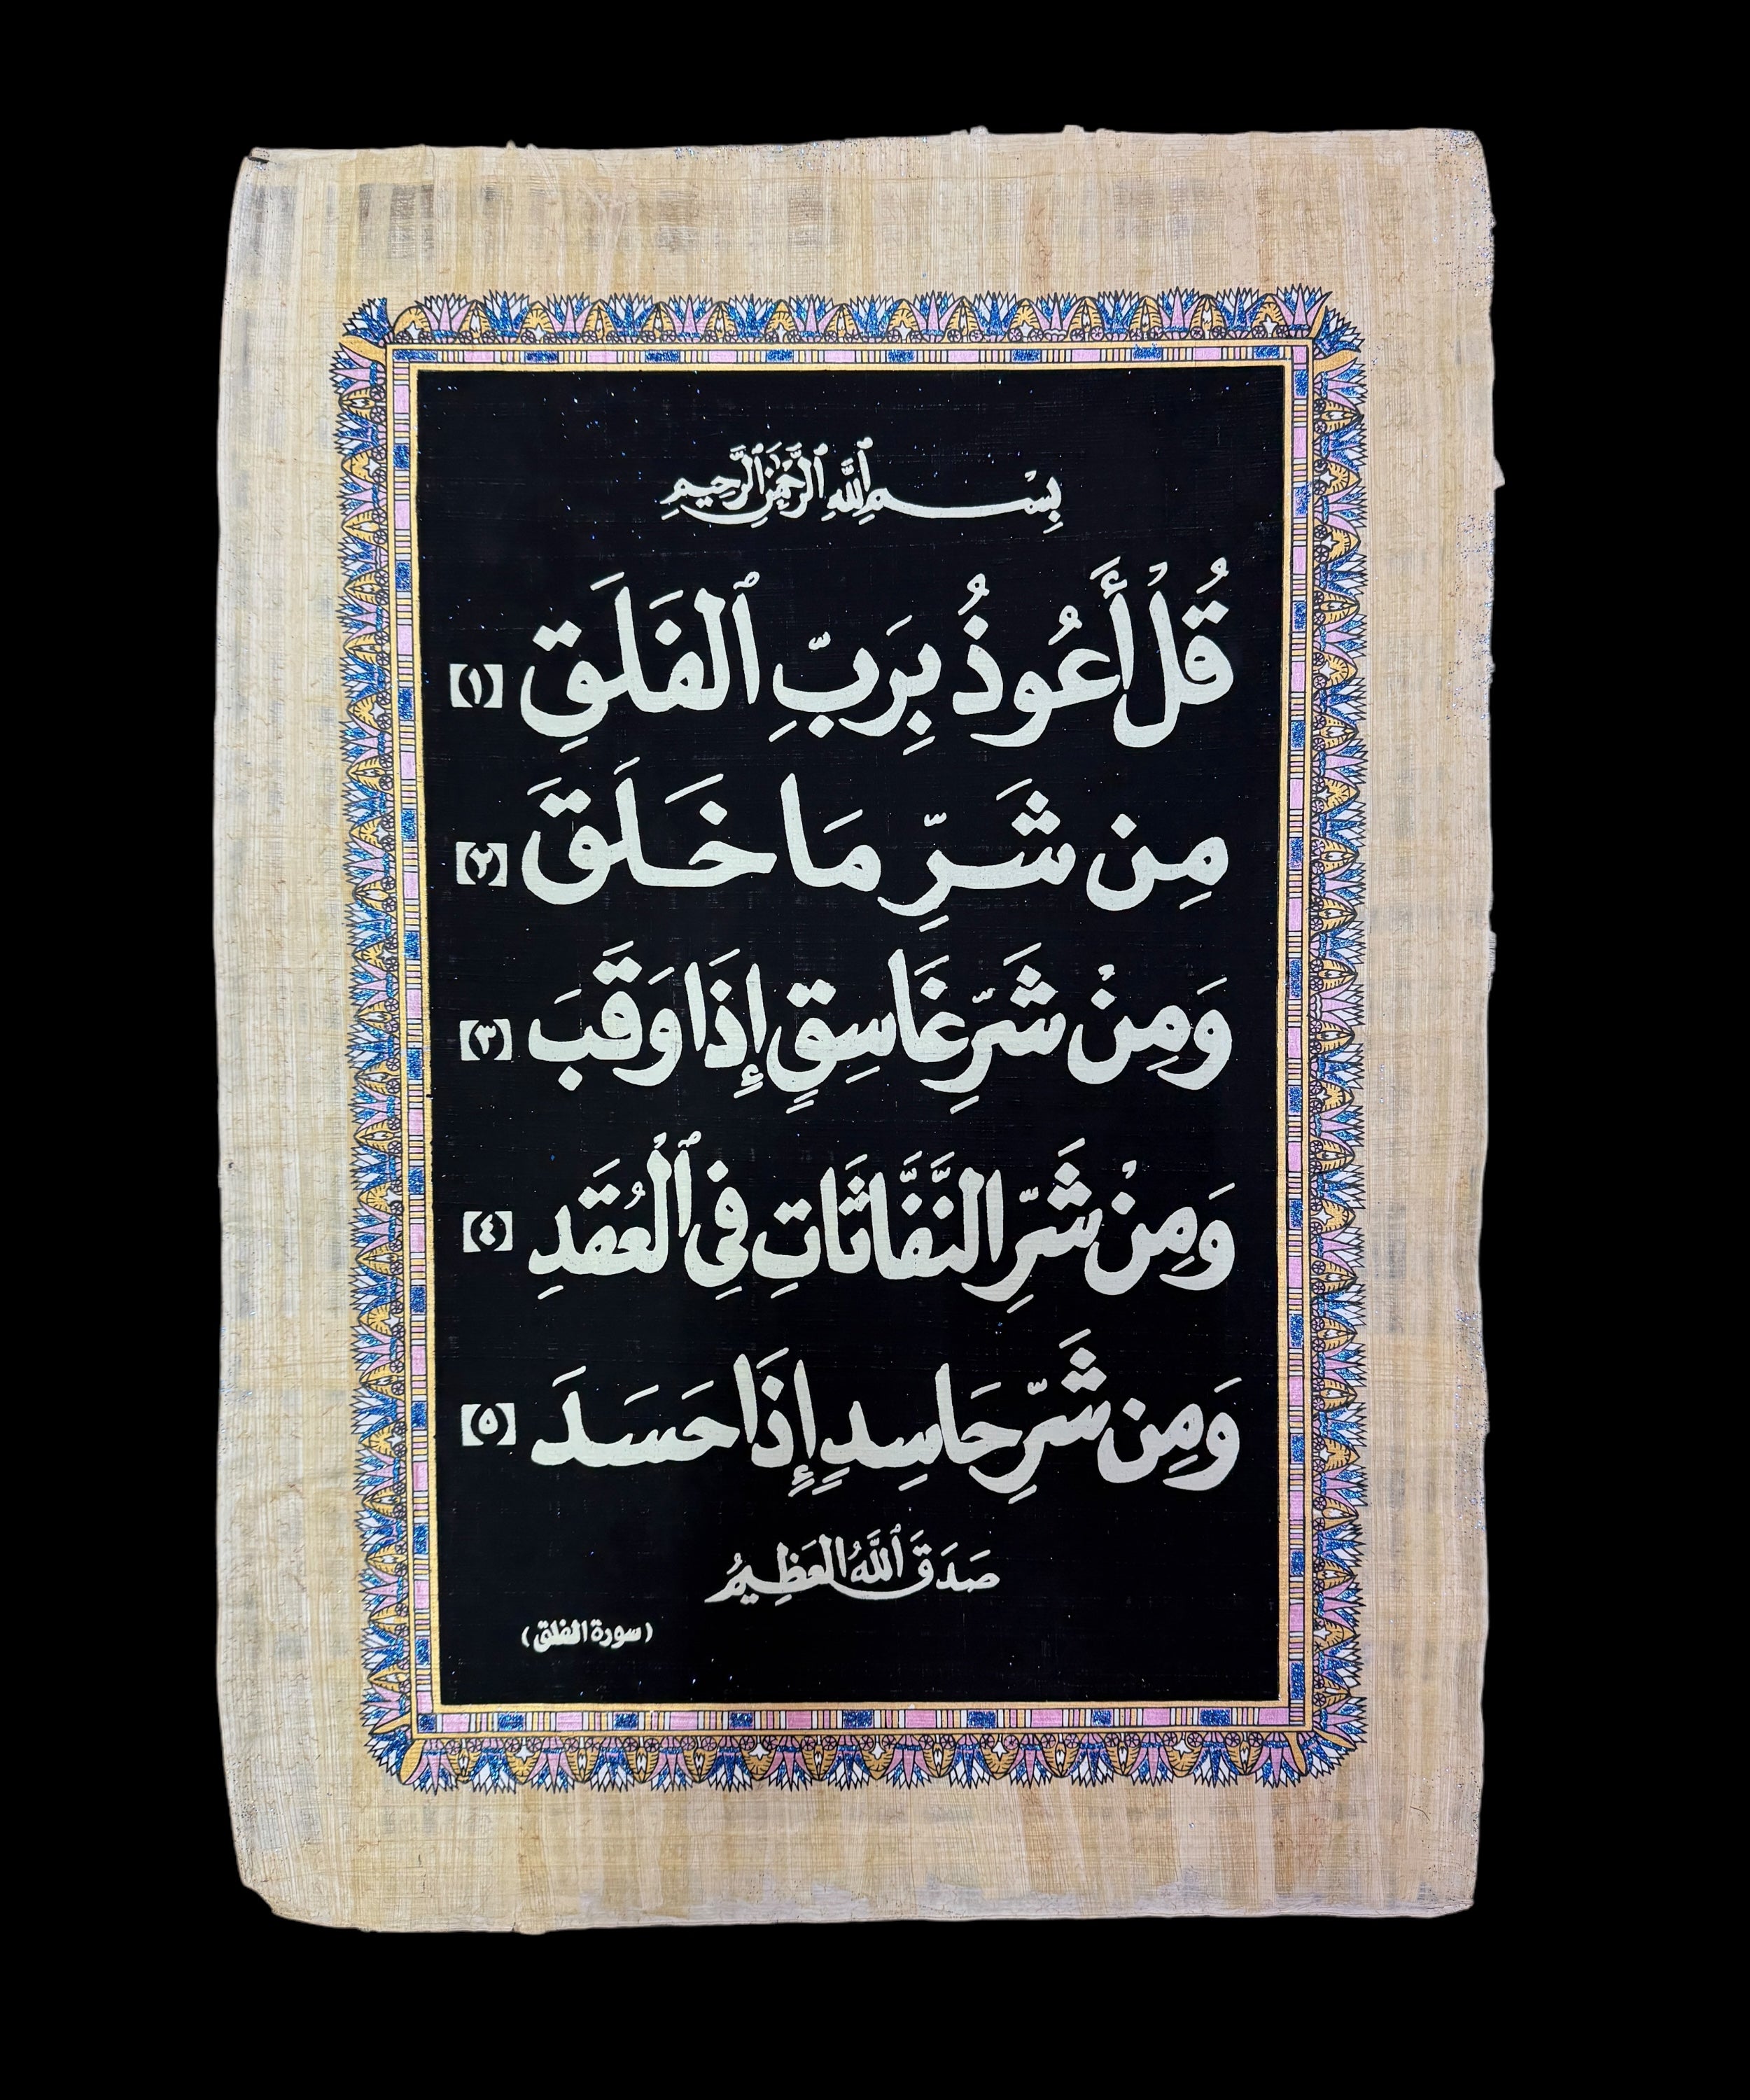 بِسْمِ ٱللَّهِ ٱلرَّحْمَٰنِ ٱلرَّحِيمِ
قُلْ أَعُوذُ بِرَبِّ ٱلفَلَقِ ﴿١﴾
مِن شَرِّ مَا خَلَقَ ﴿٢﴾
وَمِنْ شَرِّ غَاسِقٍ إِذَا وَقَبَ ﴿٣﴾
وَمِنْ شَرِّ النَّفَّاثَاتِ فِى ٱلْعُقَدِ ﴿٤﴾
وَمِن شَرِّ حَاسِدٍ إِذَا حَسَدَ ﴿٥﴾
صَدَقَ ٱللَّهُ العَظِيمُ
(سورة الفلق)